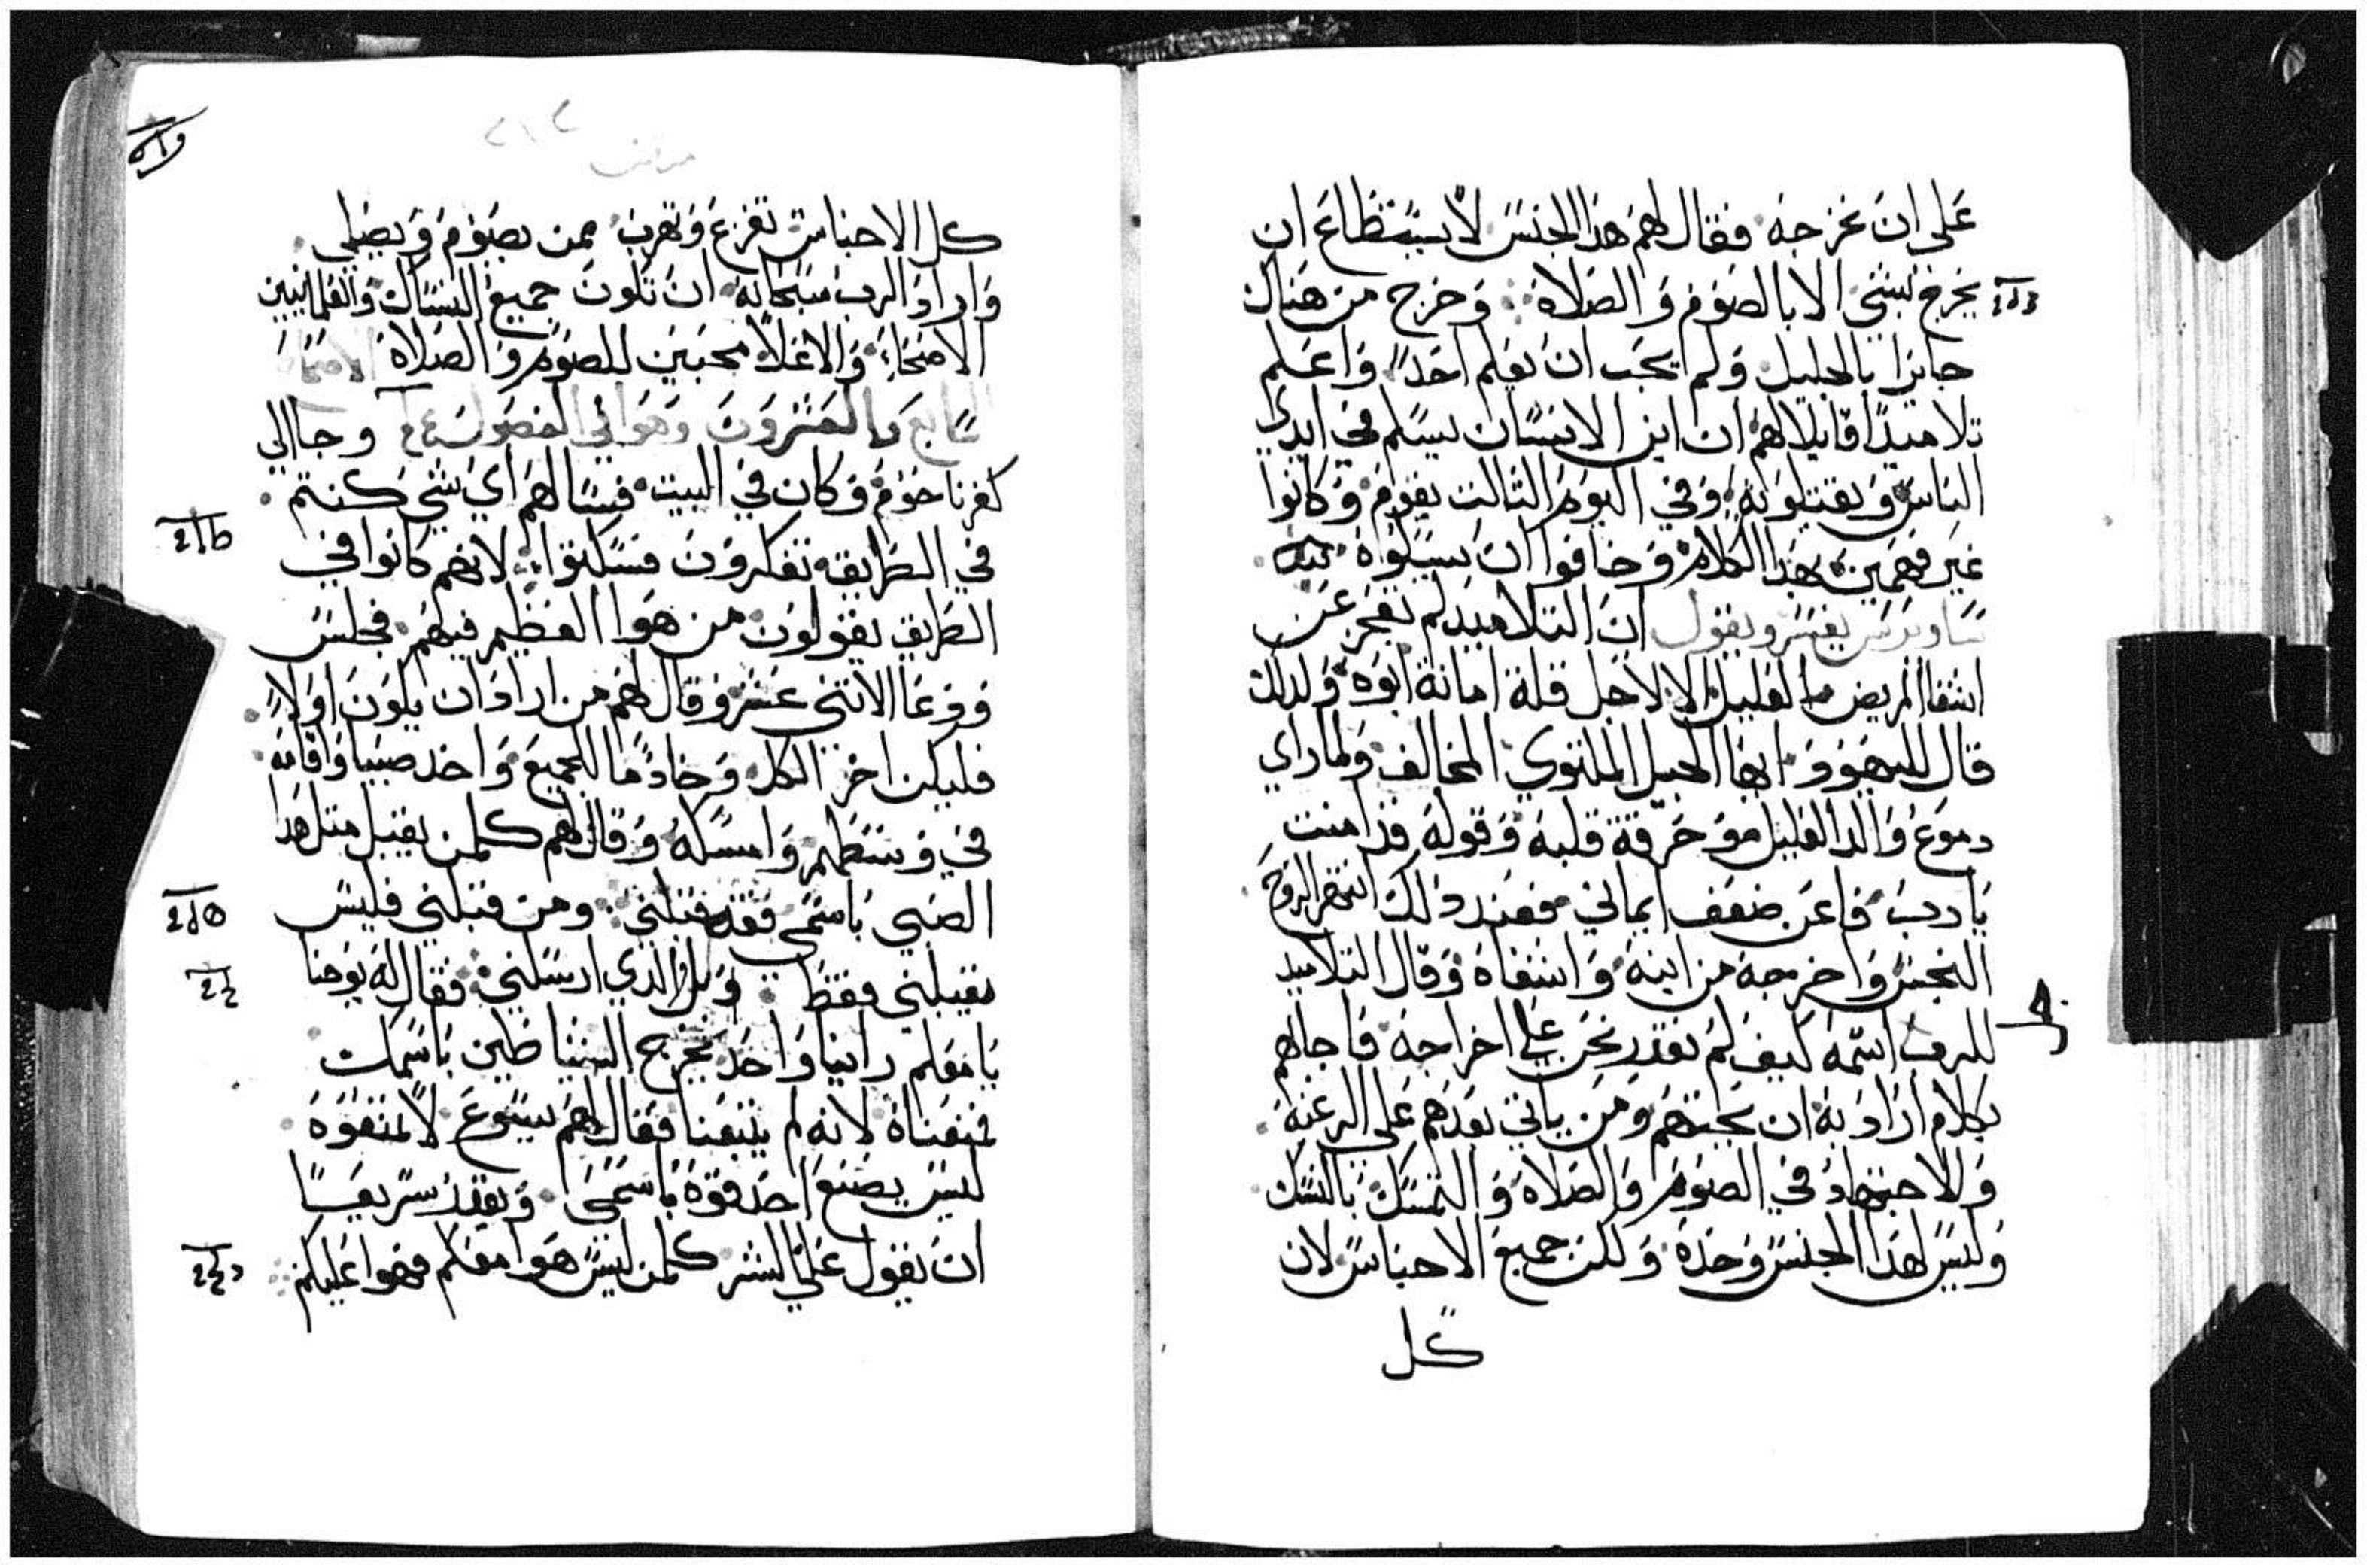 على ان نخرجه فقال لهم هذا الجنس لا يستطاع ان
يخرج بشي الا بالصوم والصلاة وخرج من هناك
جايزا بالجليل ولم يحب ان يعلم احدا واعلم
تلاميذه قايلا لهم ان ابن الانسان يسلم في ايدي
الناس ويقتلونه وفي اليوم الثالث يقوم وكانوا
غير فهمين بهذا الكلام وخافوا ان يسيلوه
ساويرس يفسر ويقول ان التلاميد لم تعجز عن
اشفا المريض العليل الا لاجل قلة امانة ابوه ولدلك
قال لليهود ايها الجيل الملتوي المخالف ولما راي
دموع والد العليل وحرقة قلبه وقوله قد امنت
يا رب فاعن ضعف ايماني فعند ذلك انتهر الروح
النجس واخرجه من ابنه واشفاه وقال التلاميد
للرب اسمه كيف لم نقدر نحن على اخراجه فاجابهم
بكلام اراد به ان يحثهم ومن ياتي بعدهم على الرغبه
والاجتهاد في الصوم والصلاه والتمسك بالنسك
وليس لهذا الجنس وحده ولكن جميع الاجناس لان
كل
كل الاجناس تفزع وتهرب ممن يصوم ويصلي
واراد الرب سبحانه ان تكون جميع النساك والعلمانيين
الاصحاء والاعلا محبين للصوم والصلاة الاصحاح
السابع والعشرون وهو في الفصول وجا الي
كفرناحوم وكان في البيت فسالهم اي شي كنتم
في الطريق تفكرون فسكتوا لانهم كانوا في
الطريق يقولون من هوا العظيم فيهم فجلس
ودعا الاتني عشر وقال لهم من اراد ان يكون اولا
فليكن اخر الكل وخادما للجميع واخد صبيا واقامه
في وسطهم وامسكه وقال لهم كلمن يقبل متل هدا
الصبي باسمي فقد قبلني ومن قبلني فليس
يقبلني فقط وبل الدي ارسلني فقال له يوحنا
يا معلم راينا واحد يخرج الشياطين باسمك
فمنعناه لانه لم يتبعنا فقال لهم يسوع لا تمنعوه
ليس يصنع احد قوة باسمي ويقدر سريعا
ان يقول علي الشر كلمن ليس هوا معكم فهوا عليكم